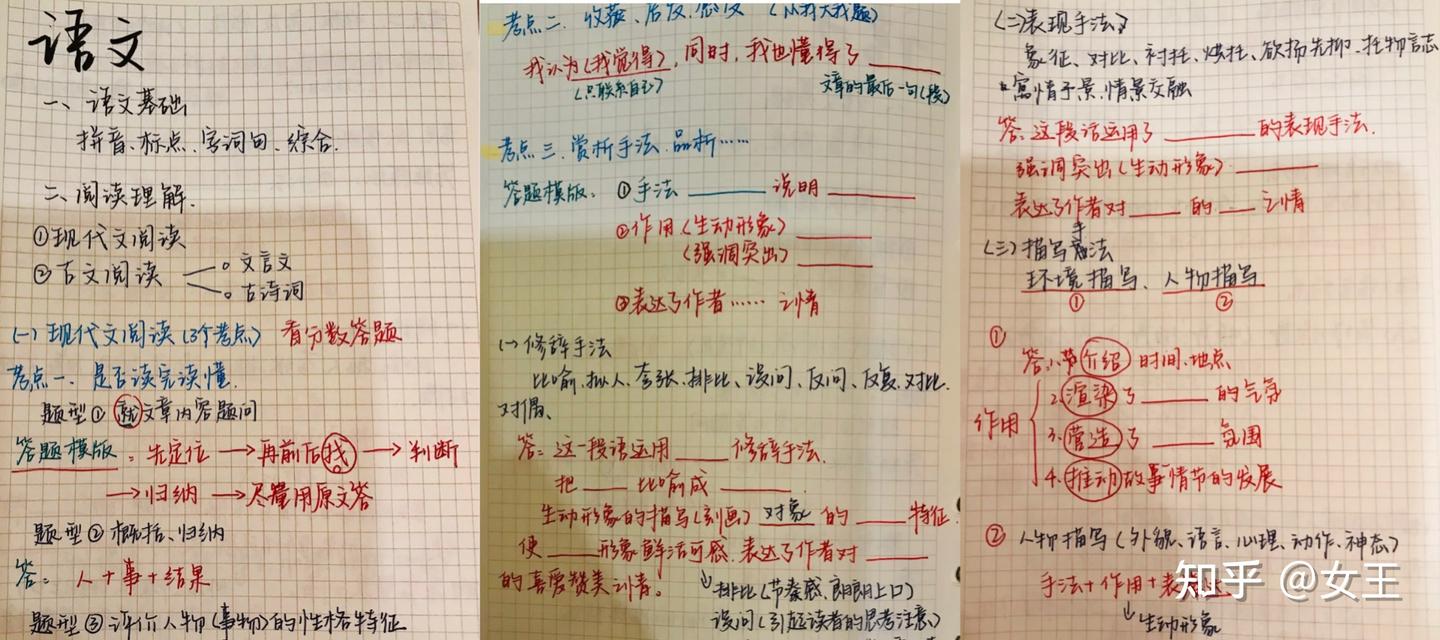 语文
一、语文基础
拼音、标点、字词句、综合.
二、阅读理解.
①现代文阅读
②古文阅读
文言文
古诗词
(一)现代文阅读(3个考点) 看分数答题
考点一、是否读完读懂.
题型① 就文章内容题问
答题模版：先定位→再前后找→判断
→归纳→尽量用原文答
题型② 概括、归纳
答：人+事+结果
题型③ 评价人物(事物)的性格特征
考点二、收获、启发、感受 (从我大我题)
我认为(我觉得)，同时，我也懂得了
(只联系自己) 文章的最后一句(段)
考点三、赏析手法、品析……
答题模版：①手法 说明
②作用(生动形象)
(强调突出)
③表达了作者……之情
(一)修辞手法
比喻、拟人、夸张、排比、设问、反问、反复、对比.
对偶、
答：这一段话运用 修辞手法.
把 比喻成 .
生动形象的描写(刻画)对象的 特征.
使 形象鲜活可感.表达了作者对
的喜爱赞美之情。
排比(节奏感、朗朗上口)
设问(引起读者的思考注意)
(二)表现手法
象征、对比、衬托、烘托、欲扬先抑、托物言志
寓情于景.情景交融
答：这段话运用了 的表现手法.
强调突出(生动形象)
表达了作者对 的 之情
(三)描写手法
环境描写、人物描写
① ②
①
答：1.介绍时间、地点
作用
2.渲染了 的气氛
3.营造了 氛围
4.推动故事情节的发展
② 人物描写(外貌、语言、心理、动作、神态)
手法+作用+表达
生动形象
知乎 @女王